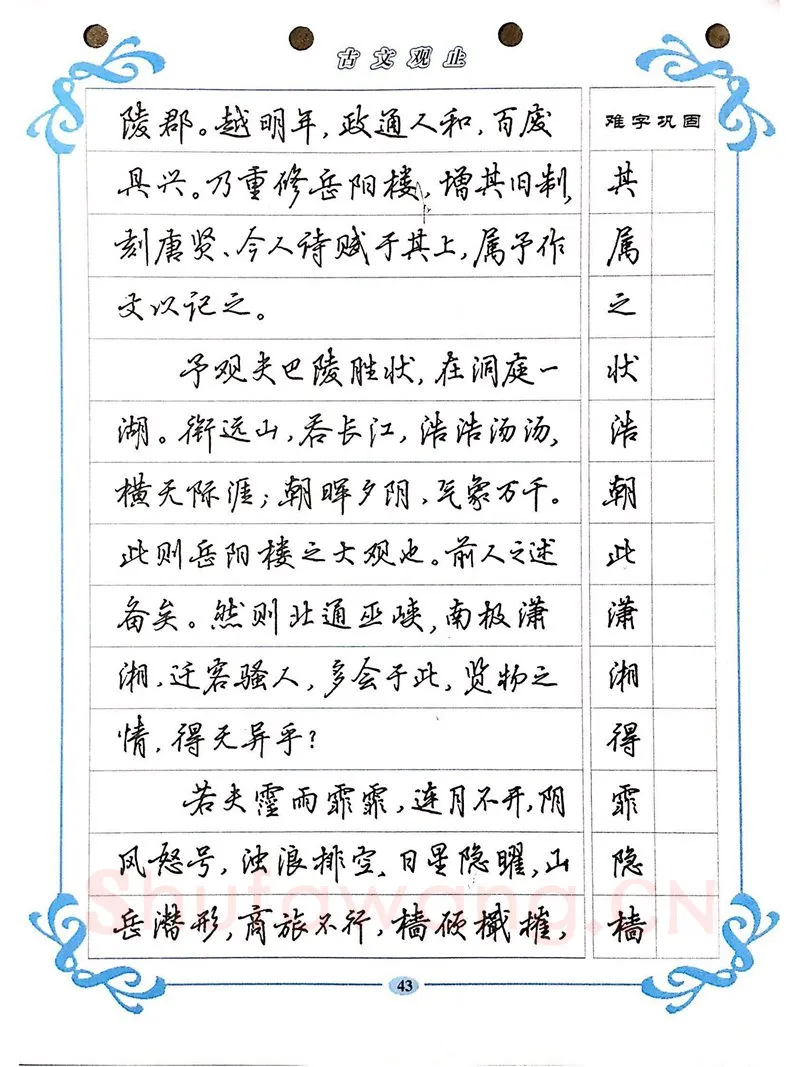 古文观止
陵郡。越明年，政通人和，百废
具兴。乃重修岳阳楼，增其旧制，
刻唐贤、今人诗赋于其上，属予作
文以记之。
予观夫巴陵胜状，在洞庭一
湖。衔远山，吞长江，浩浩汤汤，
横无际涯；朝晖夕阴，气象万千。
此则岳阳楼之大观也。前人之述
备矣。然则北通巫峡，南极潇
湘，迁客骚人，多会于此，览物之
情，得无异乎？
若夫霪雨霏霏，连月不开，阴
风怒号，浊浪排空、日星隐曜，山
岳潜形，商旅不行，樯倾檝摧，
难字巩固
其
属
之
状
浩
朝
此
潇
湘
得
霏
隐
樯
Shufawang.CN
43